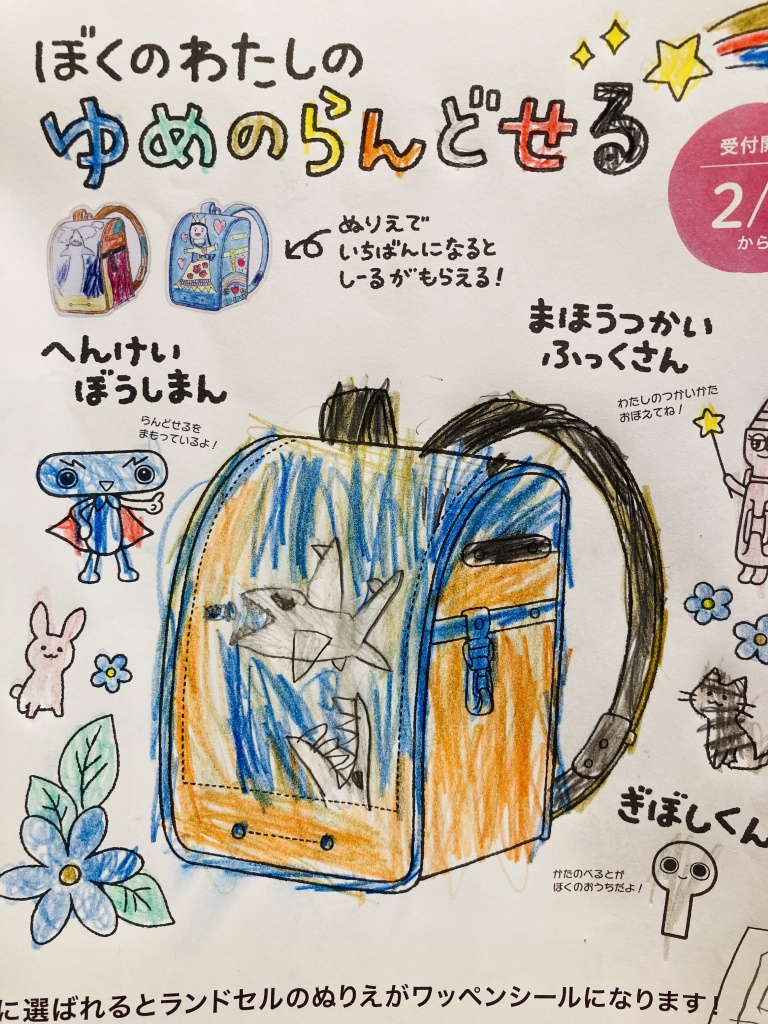 ぼくのわたしの
ゆめのらんどせる
受付開
2/
から
ぬりえで
いちばんになると
しーるがもらえる!
へんけい
ぼうしまん
らんどせるを
まもっているよ!
まほうつかい
ふっくさん
わたしのつかいかた
おぼえてね!
ぎぼしくん
かたのべるとが
ぼくのおうちだよ!
に選ばれるとランドセルのぬりえがワッペンシールになります!